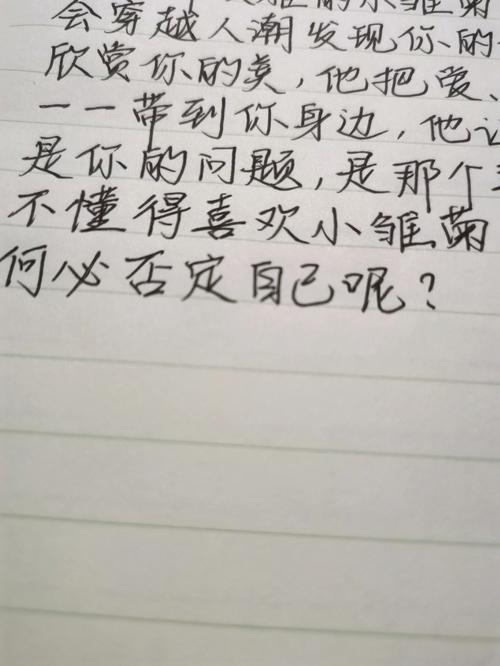 的小雏菊
会穿越人潮发现你的
欣赏你的美，他把爱、
一一带到你身边，他
是你的问题，是那个
不懂得喜欢小雏菊
何必否定自己呢？